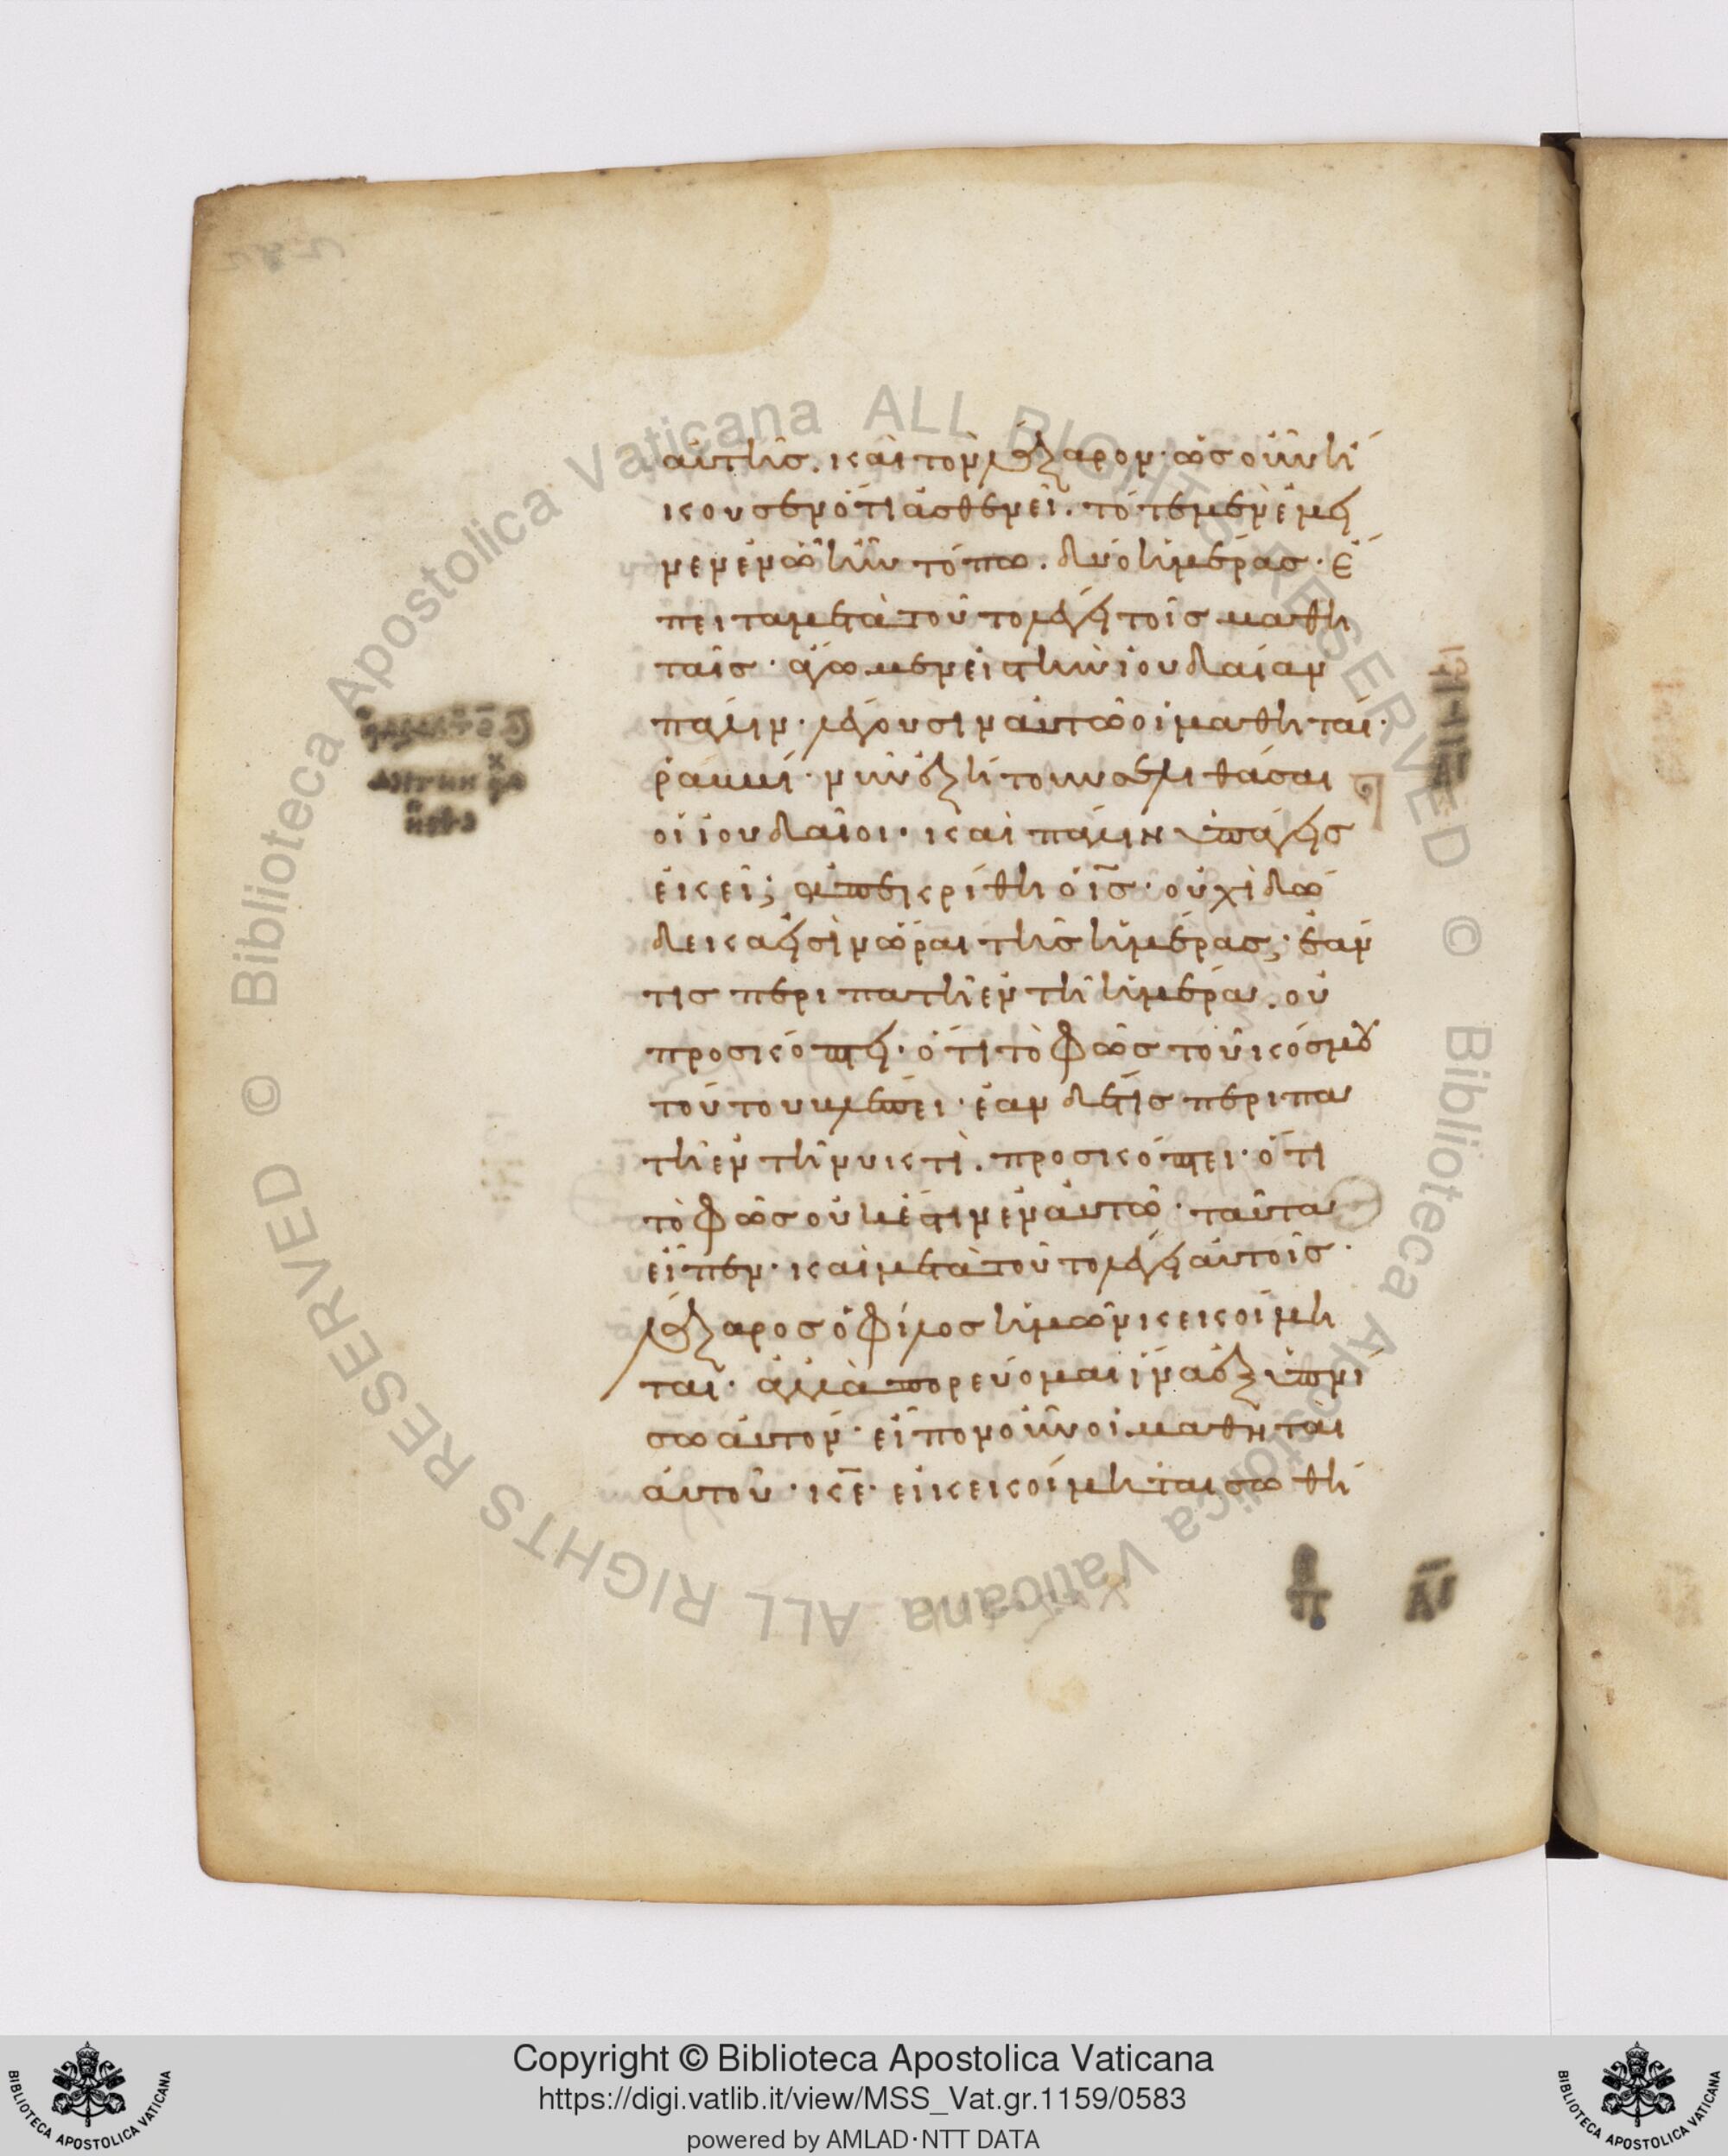 αὐτῆς. καὶ τὸν λάζαρον· ὡς οὖν ἤ
κουσεν ὅτι ἀσθενεῖ. τότε μὲν ἔμει
νεν ἐν ᾧ ἦν τόπω. δύο ἡμέρας· ἔ
πειτα μετὰ τοῦτο λέγει τοῖς μαθη
ταῖς· ἄγωμεν εἰς τὴν ἰουδαίαν
πάλιν· λέγουσιν αὐτῶ οἱ μαθηταί·
ῥαββί· νῦν ἐζήτουν σε λιθάσαι
οἱ ἰουδαῖοι· καὶ πάλιν ὑπάγεις
ἐκεῖ; ἀπεκρίθη ὁ ις̅· οὐχὶ δώ
δεκα εἰσὶν ὧραι τῆς ἡμέρας; ἐάν
τις περιπατῆ ἐν τῆ ἡμέρα. οὐ
προσκόπτει· ὅτι τὸ φῶς τοῦ κόσμου
τούτου βλέπει· ἐὰν δέ τις περιπα
τῆ ἐν τῆ νυκτὶ. προσκόπτει· ὅτι
τὸ φῶς οὐκ ἔστιν ἐν αὐτῶ· ταῦτα
εἶπεν· καὶ μετὰ τοῦτο λέγει αὐτοῖς·
λάζαρος ὁ φίλος ἡμῶν κεκοίμη
ται· ἀλλὰ πορεύομαι ἵνα ἐξυπνί
σω αὐτόν· εἶπον οὖν οἱ μαθηταὶ
αὐτοῦ· κε̅· εἰ κεκοίμηται σωθή
Copyright © Biblioteca Apostolica Vaticana
https://digi.vatlib.it/view/MSS_Vat.gr.1159/0583
powered by AMLAD·NTT DATA
© Biblioteca Apostolica Vaticana ALL RIGHTS RESERVED © Biblioteca Apostolica Vaticana ALL RIGHTS RESERVED
BIBLIOTECA APOSTOLICA VATICANA
BIBLIOTECA APOSTOLICA VATICANA